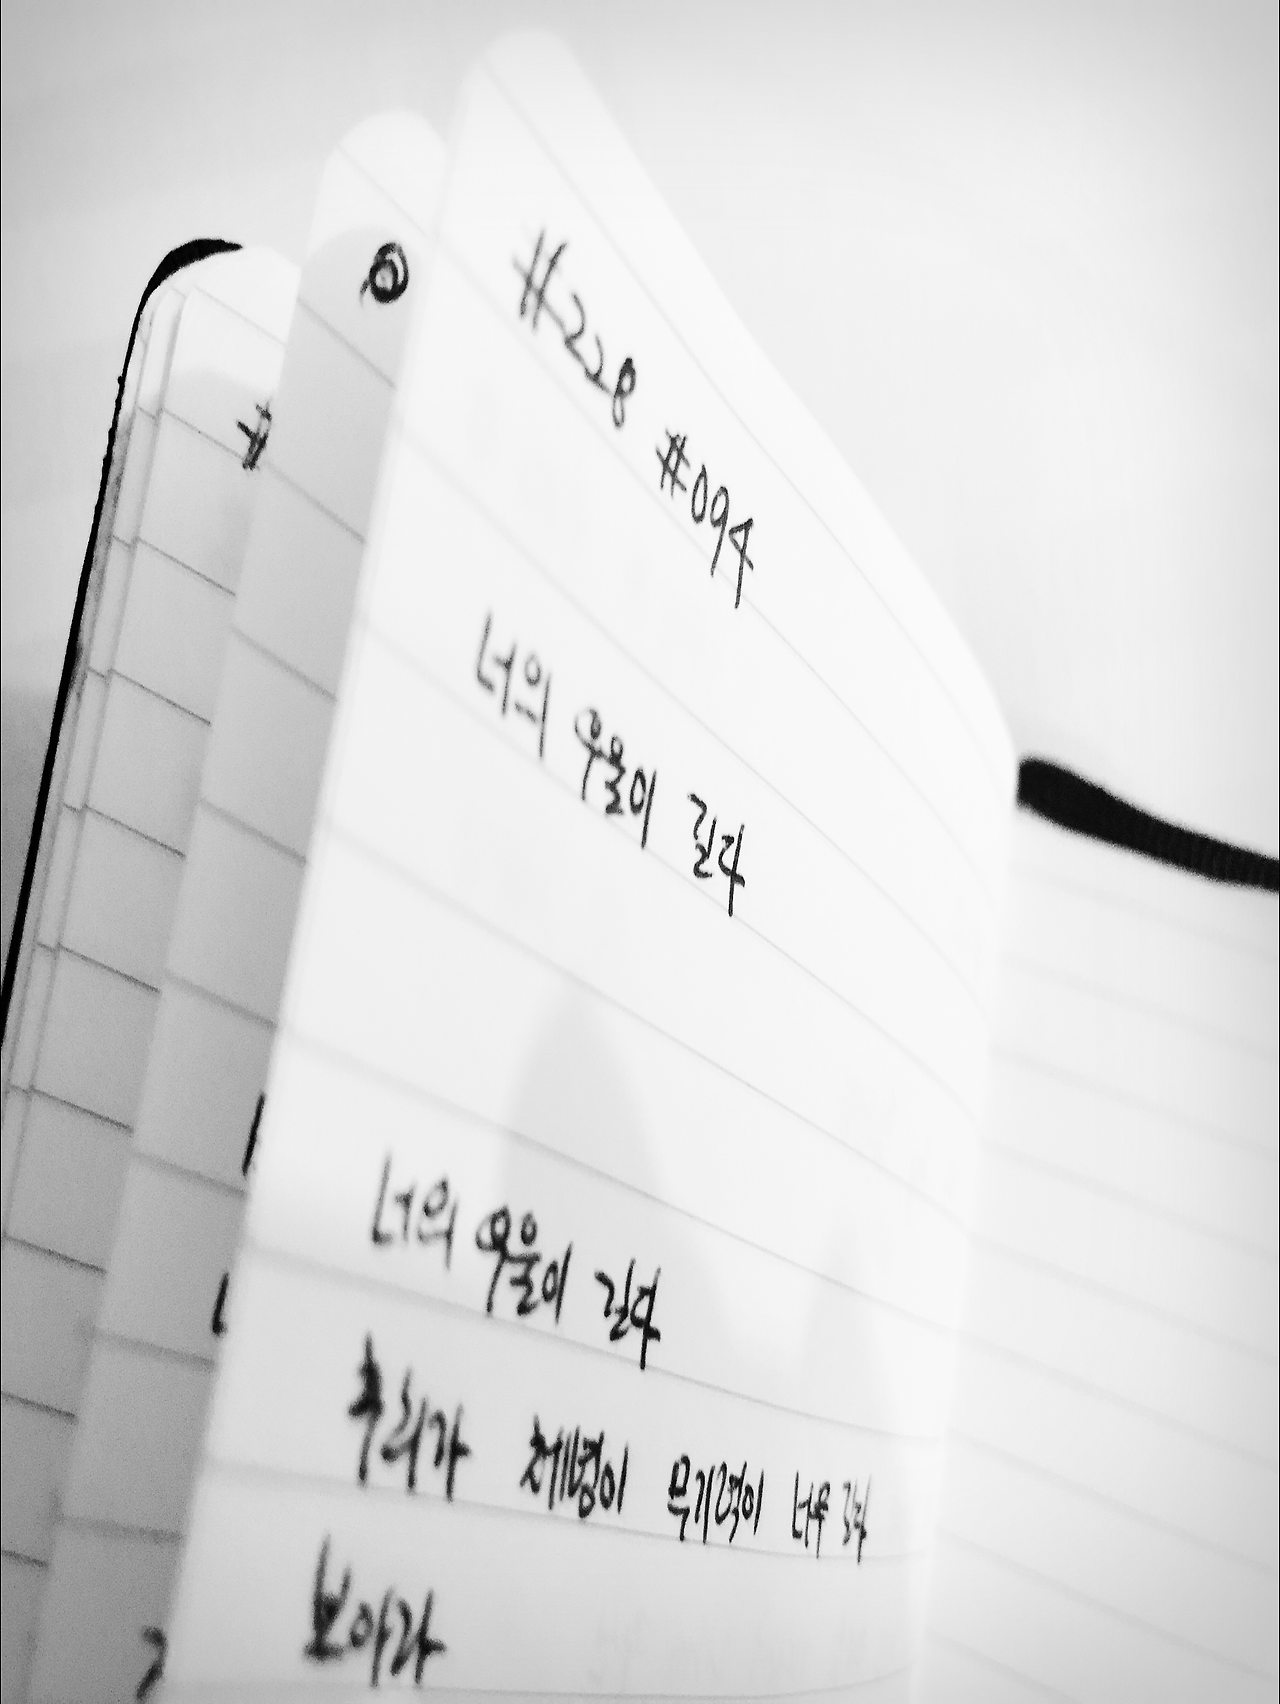 #228 #094
너의 우울이 길다
너의 우울이 길다
후회가 체념이 무기력이 너무 길다
보아라